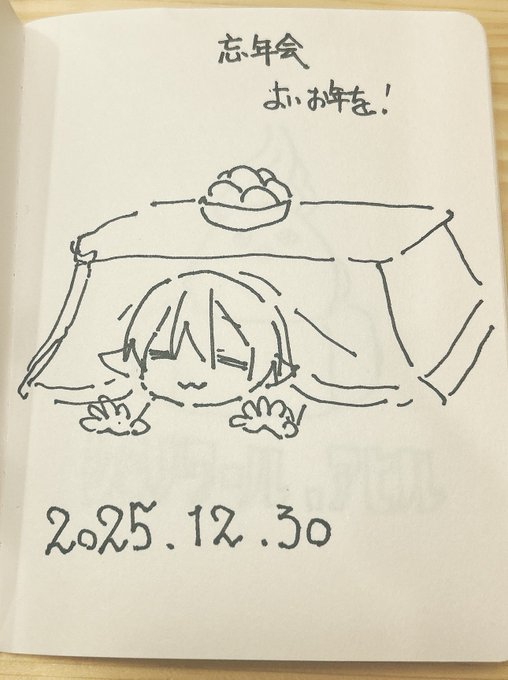 忘年会
よいお年を!
2025.12.30